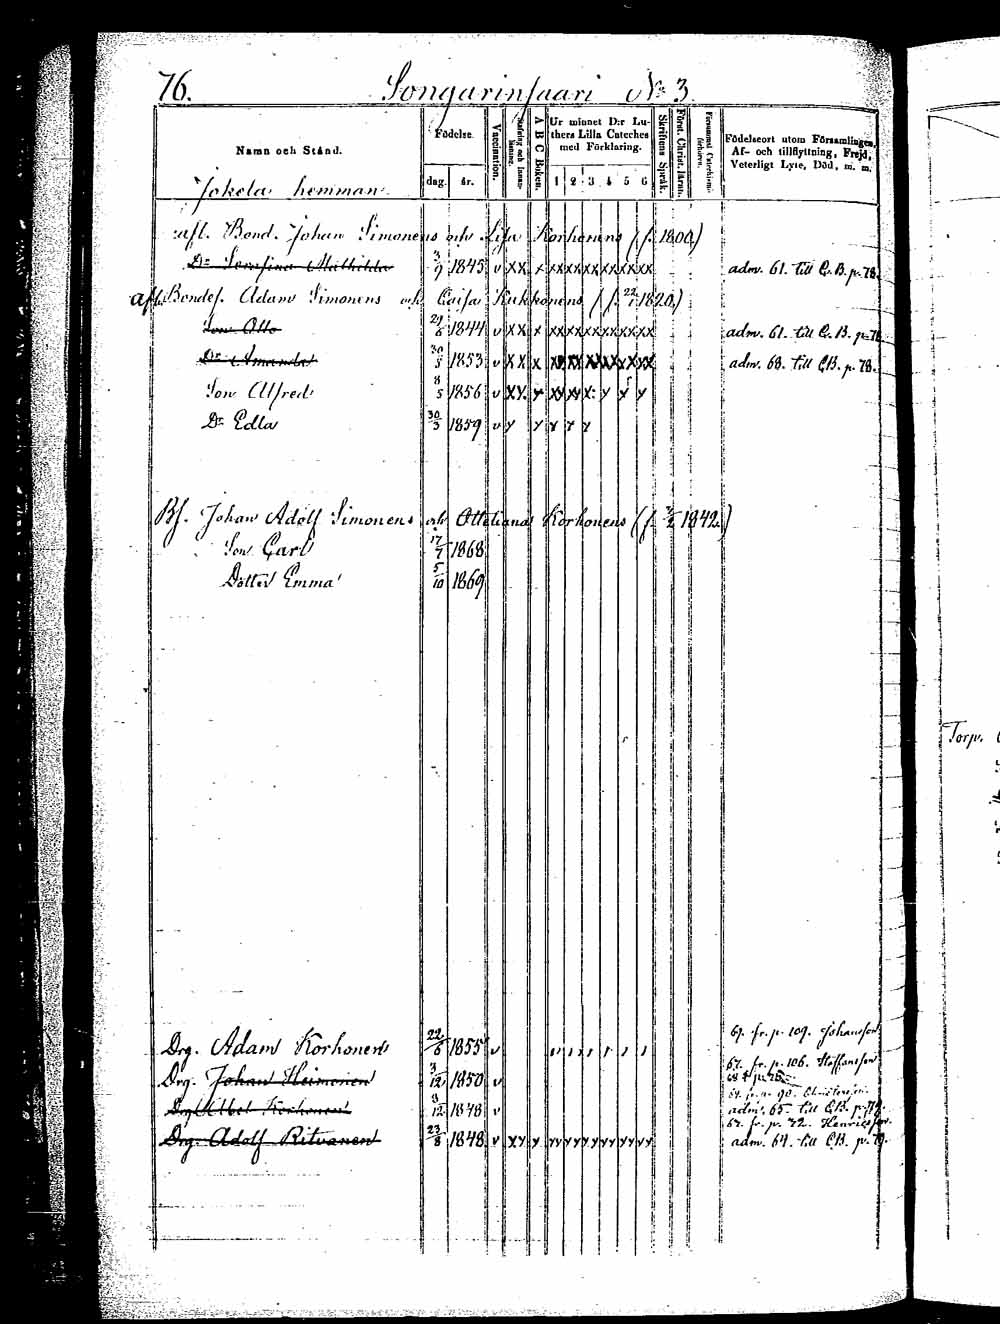 76. Songarinsaari No 3
Namn och Stånd.
Födelse.
dag. år.
Vaccination.
A B C Boken.
Ur minnet D:r Luthers Lilla Cateches med Förklaring.
1 2 3 4 5 6
Skriftens Språk.
Först. Christ. läran.
Födelseort utom Församlingen, Af- och tillflyttning, Frejd, Veterligt Lyte, Död, m. m.
Jokela hemman
afl. Bond. Johan Simonens och Lisa Korhonens (f. 1800)
Dr Serafina Mathilda 3/9 1845 v xx x xxxxxxxxxxxx adm. 61. till C. B. p. 78.
afl. Bondes. Adam Simonens och Caisa Kukkonens (f. 22/1 1820)
Son Otto 1844 v xx x xxxxxxxxxxxx adm. 61. till C. B. p. 78
Dr Amanda 30/5 1853 v xx x xxxxxxxxxxxx adm. 68. till C.B. p. 78.
Son Alfred 8/5 1856 v xx x xxxxx x x x
Dr Edla 30/3 1859 v x x x x x
Bs. Johan Adolf Simonens och Ottiliana Korhonens (f. 1842)
Son Carl 17/7 1868
Dotter Emma 5/10 1869
Drg. Adam Korhonen 22/6 1855 v 69. fr. p. 109. Johansson
Drg. Johan Heimonen 3/12 1850 v 67. fr. p. 106. Staffansson
Drg Abel Korhonen 8/12 1848 v adm. 65. till C.B. p. 78.
Drg. Adolf Ritvanen 23/8 1848 v xx x xxxxxxxxxxxx 62. fr. p. 72. Henriksson
adm. 64. till C.B. p. 79.
Torp.